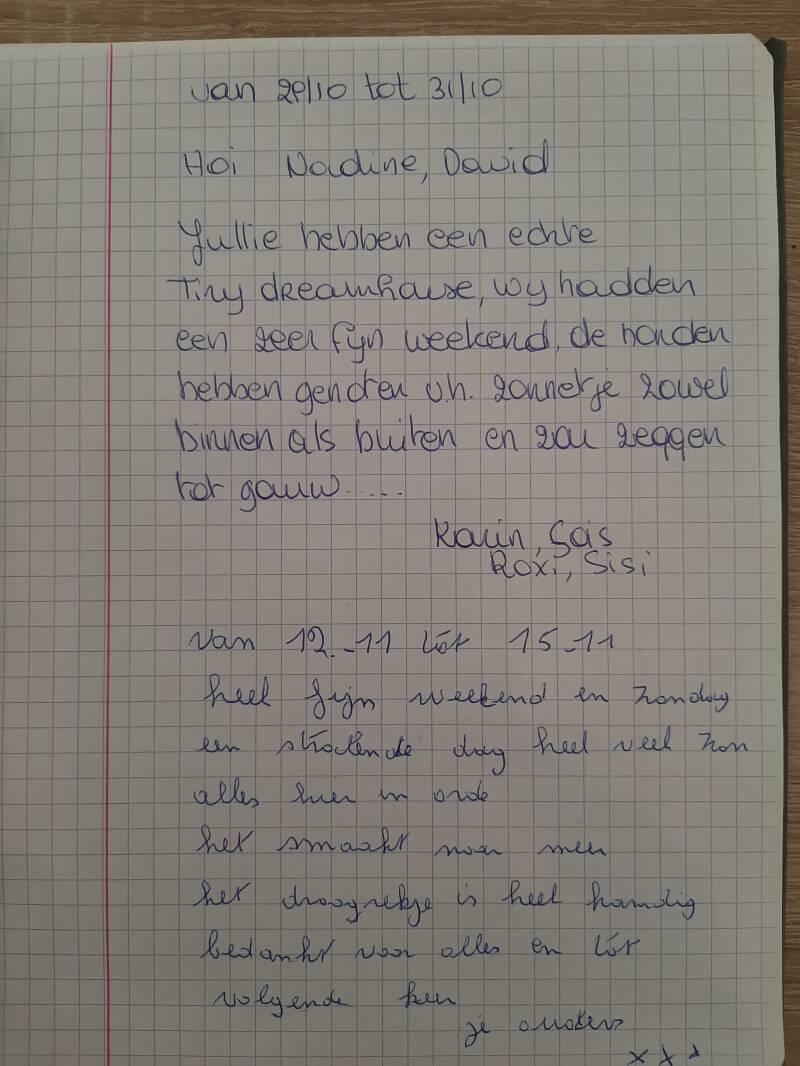 van 29/10 tot 31/10
Hoi Nadine, David
Jullie hebben een echte
Tiny dreamhouse, wy hadden
een zeer fyn weekend, de honden
hebben genoten v.h. zonnetje zowel
binnen als buiten en zou zeggen
tot gauw.....
Karin, Sais
Roxi, Sisi
van 12-11 tot 15-11
heel fijn weekend en zondag
een stralende dag heel veel zon
alles hier in orde
het smaakt naar meer
het droogrekje is heel handig
bedankt voor alles en tot
volgende keer
je ouders
x x x